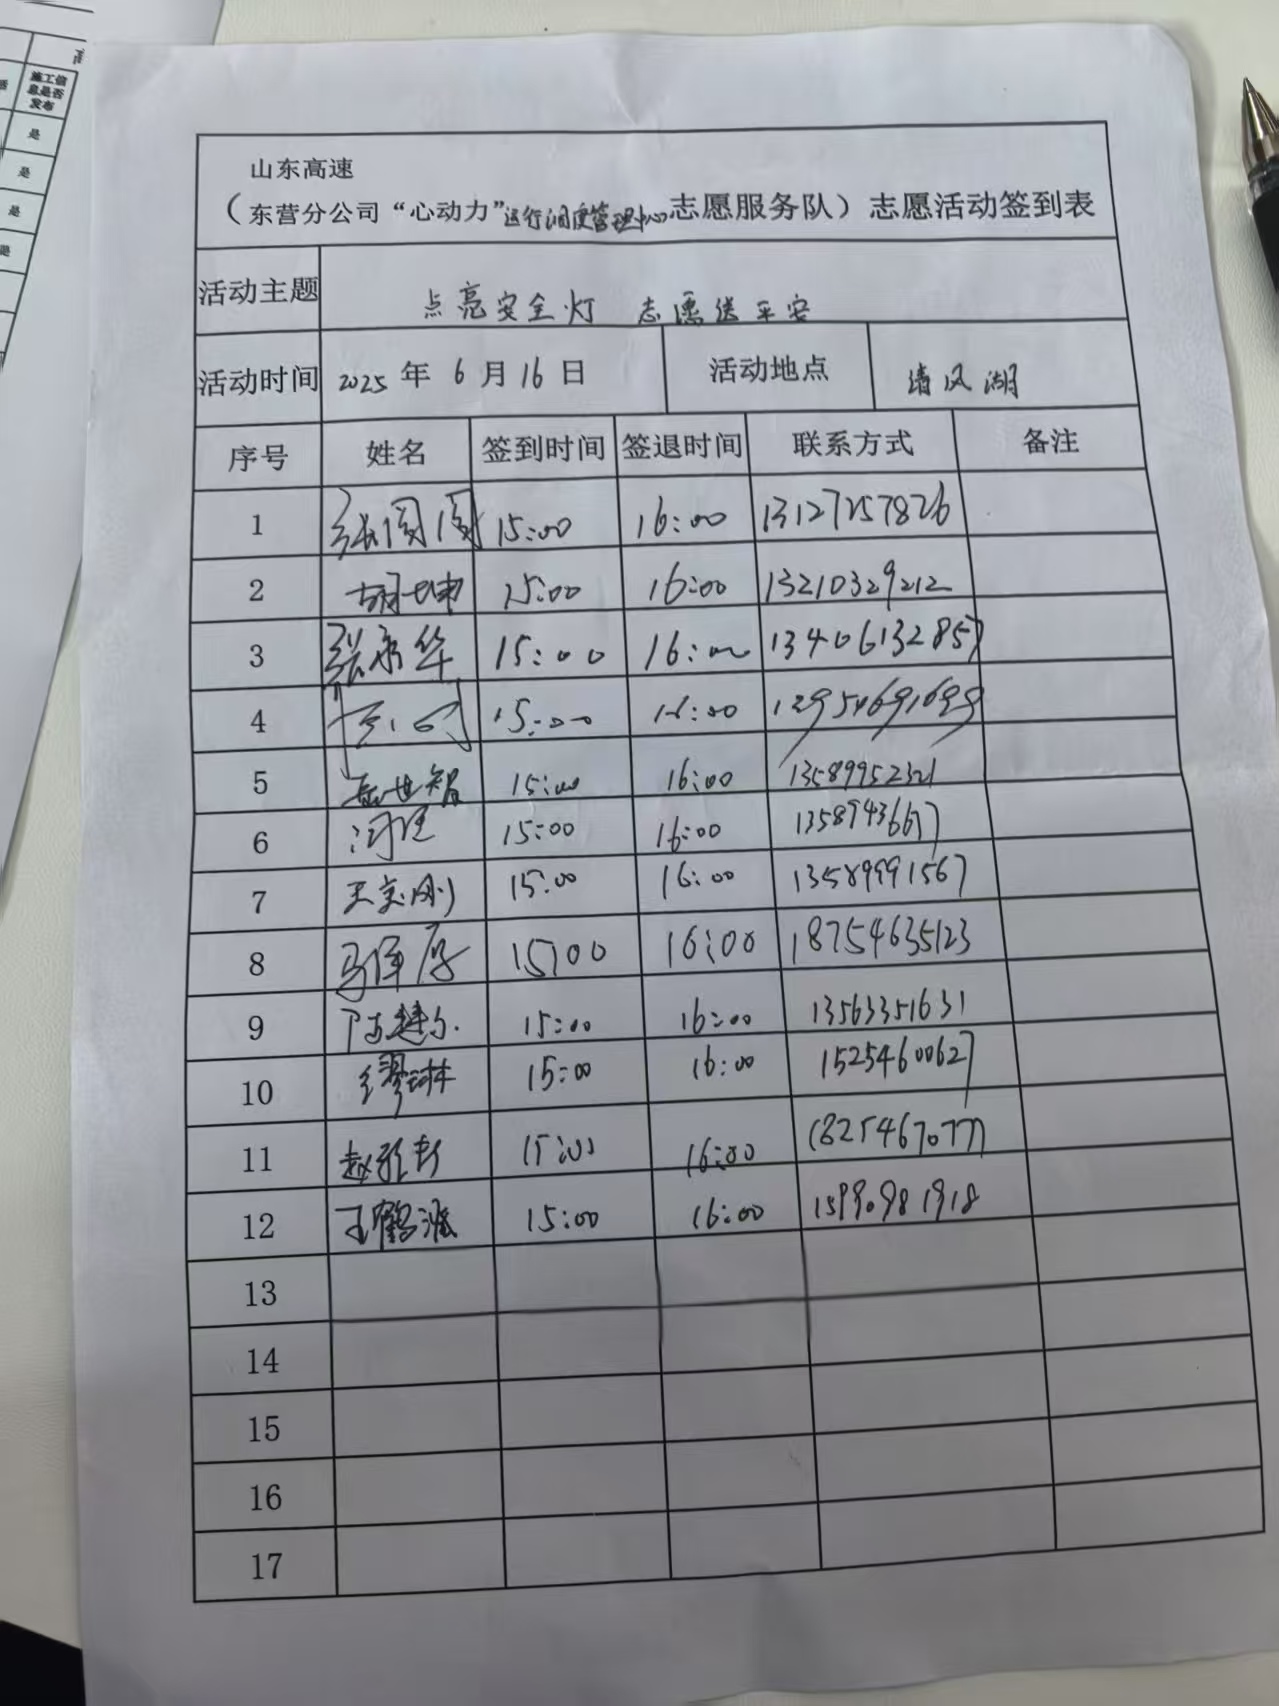 施工信
息是否
发布
是
是
是
是
山东高速
（东营分公司“心动力”运行调度管理中心志愿服务队）志愿活动签到表
活动主题 点亮安全灯 志愿送平安
活动时间 2025年6月16日 活动地点 清风湖
序号 姓名 签到时间 签退时间 联系方式 备注
1 张园园 15:00 16:00 13127257826
2 胡坤 15:00 16:00 13210329212
3 张秀华 15:00 16:00 13406132857
4 15:00 16:00
5 岳世智 15:00 16:00 13589952321
6 15:00 16:00 13589436677
7 王京刚 15:00 16:00 13589991567
8 马泽厚 15:00 16:00 18754635123
9 15:00 16:00 13563351631
10 缪琳 15:00 16:00 15254600627
11 赵雅轩 15:00 16:00 18254670777
12 王鹤涵 15:00 16:00 15990981918
13
14
15
16
17